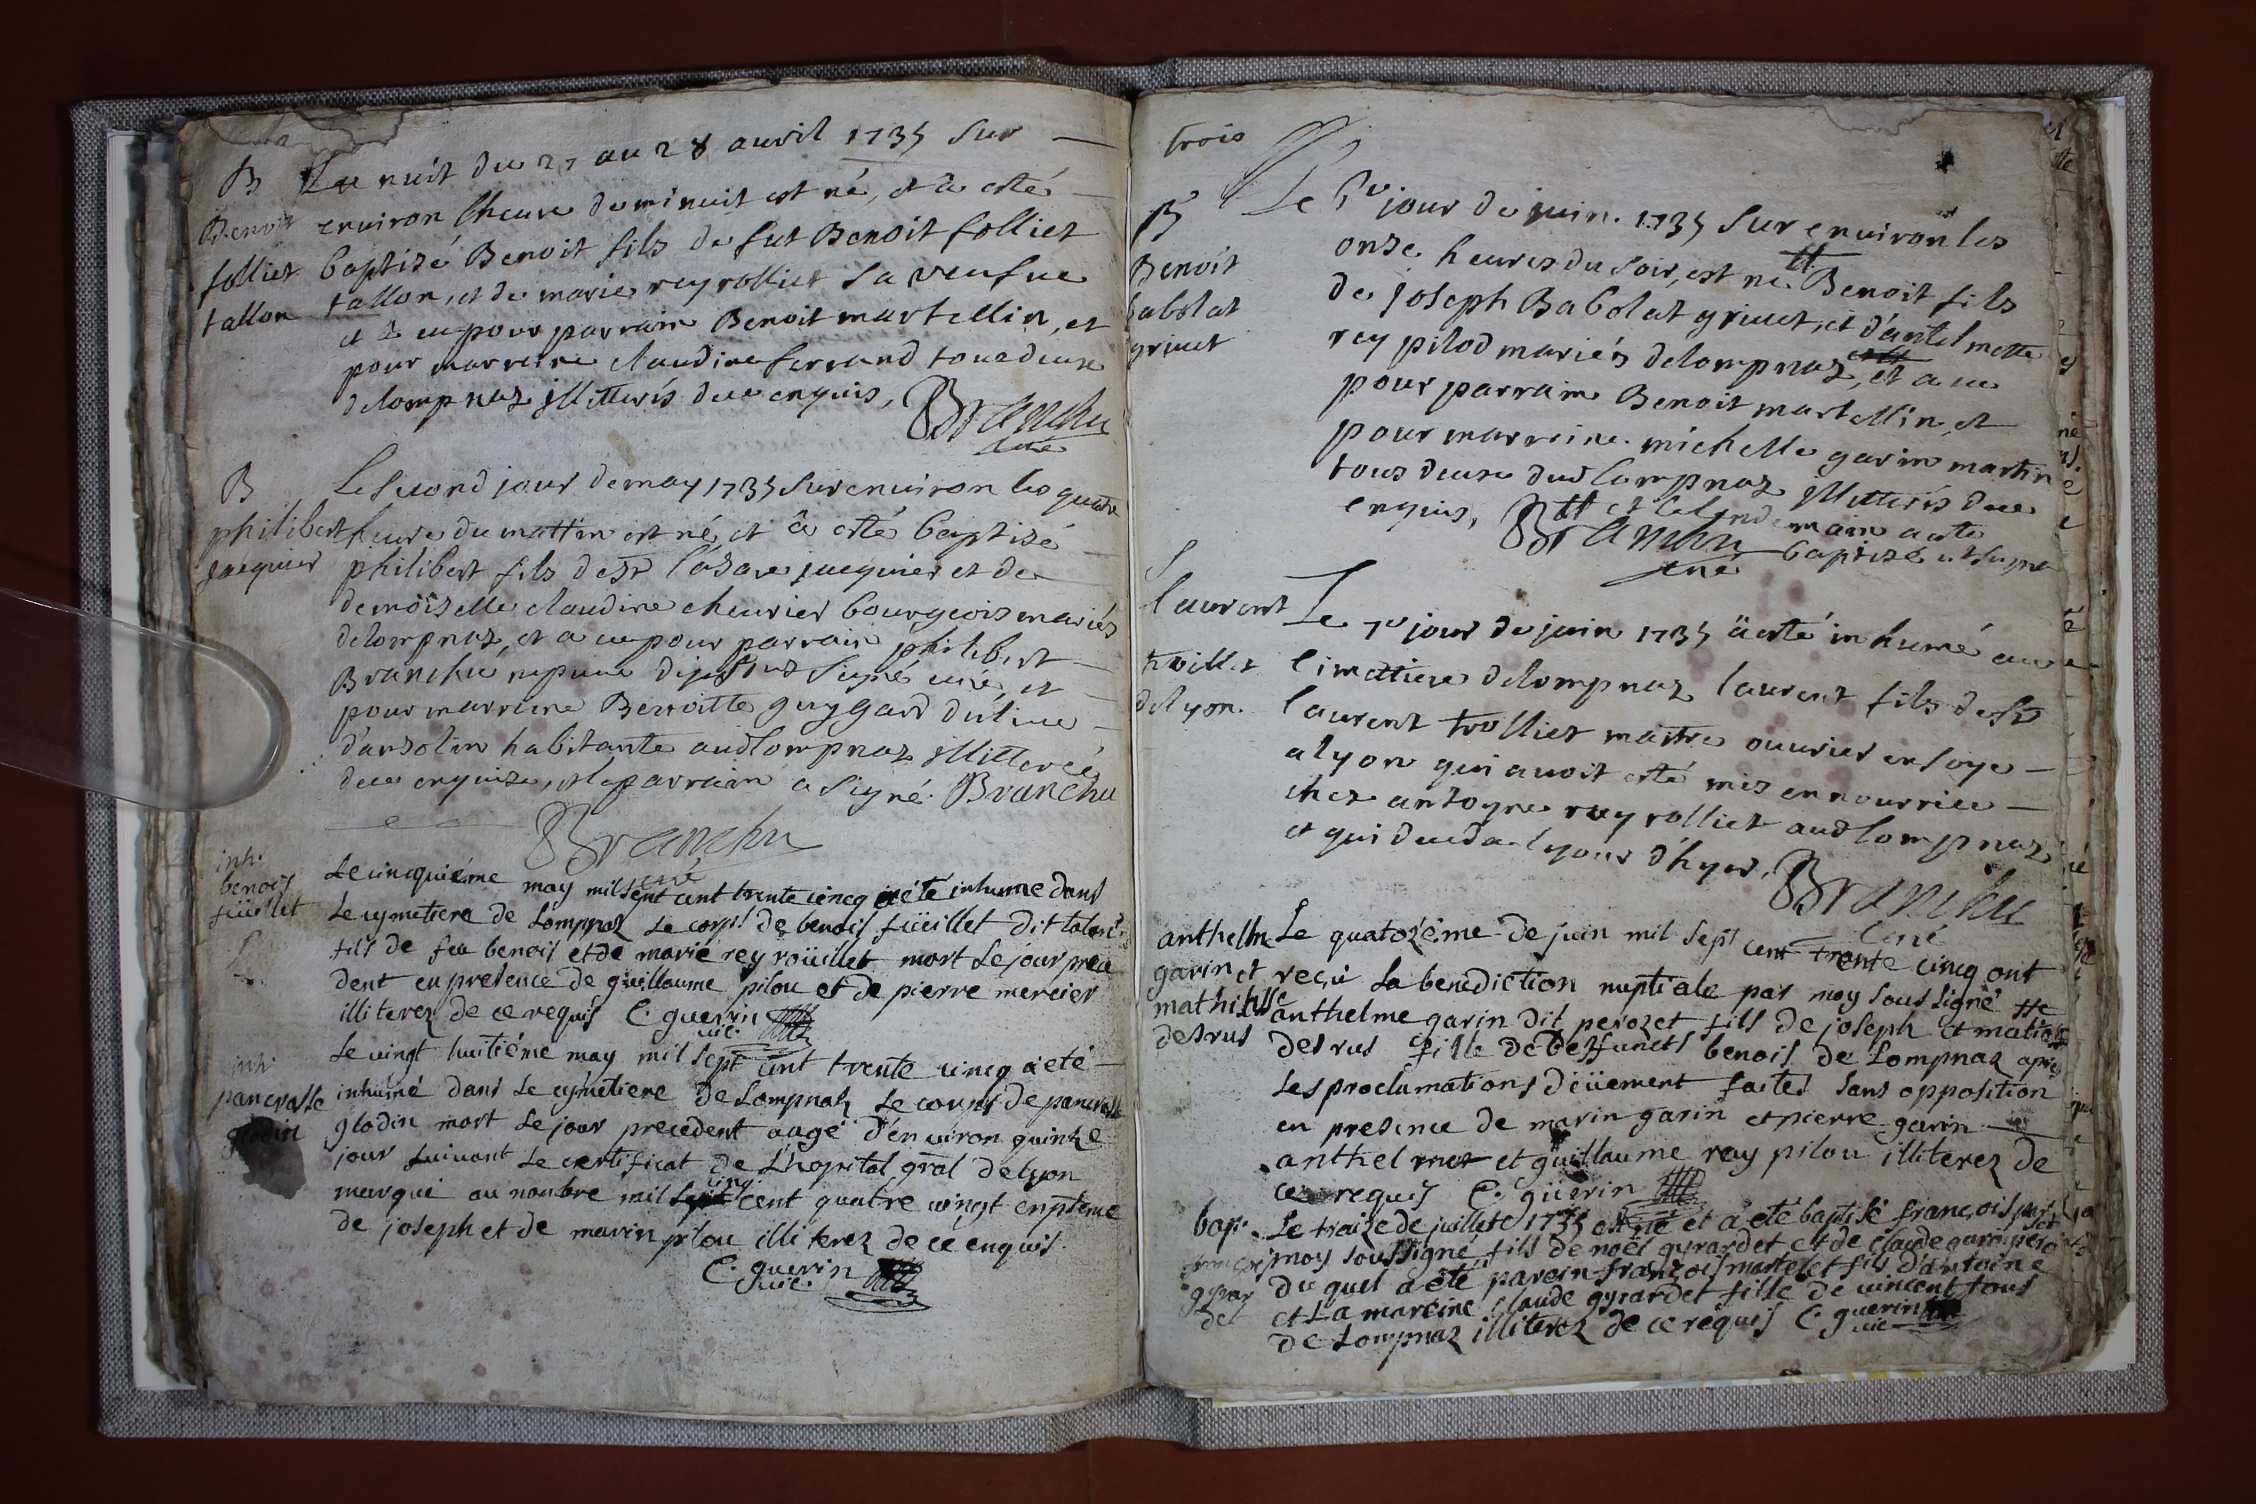 B La nuit du 27 au 28 avril 1735 sur
Benoit environ lheure de minuit est né, et a esté
folliet baptisé Benoit fils de fut Benoit folliet
tallon tallon, et de marie reyrolliet sa veufue
et a eu pour parrain Benoit martellin, et
pour marreine claudine ferrand tous deux
de lompnaz illitterés de ce enquis,
Branchu
curé
B Le second jour de may 1735 sur environ les quatre
philibert heure du mattin est né, et a esté baptisé
jacquier philibert fils de sr lazare jacquier et de
demoiselle claudine cheurier bourgeois mariés
de lompnaz, et a eu pour parrain philibert
Branchu nepueu du sousigné curé, et
pour marreine Benoitte guygard du lieu
d'anzolin habitante aud lompnaz illitterée
de ce enquise, et le parrain a signé. Branchu
Branchu
curé
inh.
benois
füillet
Le cincquiéme may mil sept cent trente cincq a été inhumé dans
Le cymetiere de Lompnaz Le corps de benois füeillet dit talon
fils de feu benois et de marie rey roüillet mort Le jour prece
dent en presence de guillaume pilou et de pierre mercier
illiterez de ce requis C. guerin
vic.
inh
pancrasse
glodin
Le vingt huitiéme may mil sept cent trente cincq a eté
inhumé dans Le cymetiere de Lompnaz Le corps de pancrasse
glodin mort Le jour precedent aagé d'environ quinze
jour suivant Le certificat de L'hopital gral de lyon
marqué au nombre mil cinq cent quatre vingt en presence
de joseph et de marin pilou illiterez de ce enquis.
C. guerin
vic
trois
B Le 1er jour de juin. 1735 sur environ les
Benoit onze heures du soir, est né tt Benoit fils
babolat de joseph Babolat gruet, et d'antelmette
gruet rey pilod mariés de lompnaz, et a eu
pour parrain Benoit martellin, et
pour marreine michelle garin martin
tous deux dud lompnaz illitterés de ce
enquis, tt et le lendemain a esté
baptisé ut supra
Branchu
curé
S
laurent
trolliet
de lyon.
Le 7e jour de juin 1735 a esté inhumé au
cimettiere de lompnaz laurent fils de sr
laurent trolliet maitre ouurier en soye
a lyon qui auoit esté mis en nourrice
chez antoyne reyrolliet aud lompnaz
et qui deceda le jour d'hyer,
Branchu
curé
anthelme
garin et
mathieusse
desrus
Le quatoziéme de juin mil sept cent trente cincq ont
reçu La benediction nuptiale par moy soussigné
anthelme garin dit perozet fils de joseph et mathieusse
desrus fille de deffuncts benois de Lompnaz apres
Les proclamations düement faites sans opposition
en presence de marin garin et pierre garin
anthelme et guillaume rey pilou illiterez de
ce requis C. guerin
bap.
françois
gyrar
det
Le traize de juillet 1735 est né et a été baptisé françois par
moy soussigné fils de noël gyrardet et de claude garin
du quel a été parein françois martelet fils d'antoine
et La mareine claude gyrardet fille de vincent tous
de Lompnaz illiterez de ce réquis C. guerin
vic